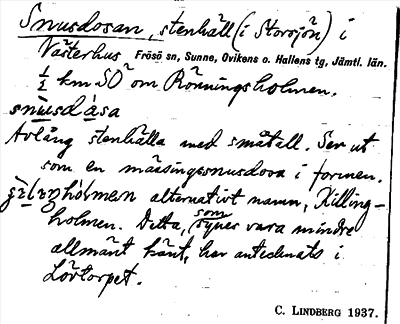 Snusdosan, stenhäll (i Storsjön) i
Västerhus Frösö sn, Sunne, Ovikens o. Hallens tg, Jämtl. län.
½ km SO om Rönningsholmen.
snusdåsa
Avlång stenhälla med småtall. Ser ut
som en mässingssnusdosa i formen.
holmen alternativt namn, Killing-
holmen. Detta, som synes vara mindre
allmänt känt, har antecknats i
Lövtorpet.
C. LINDBERG 1937.